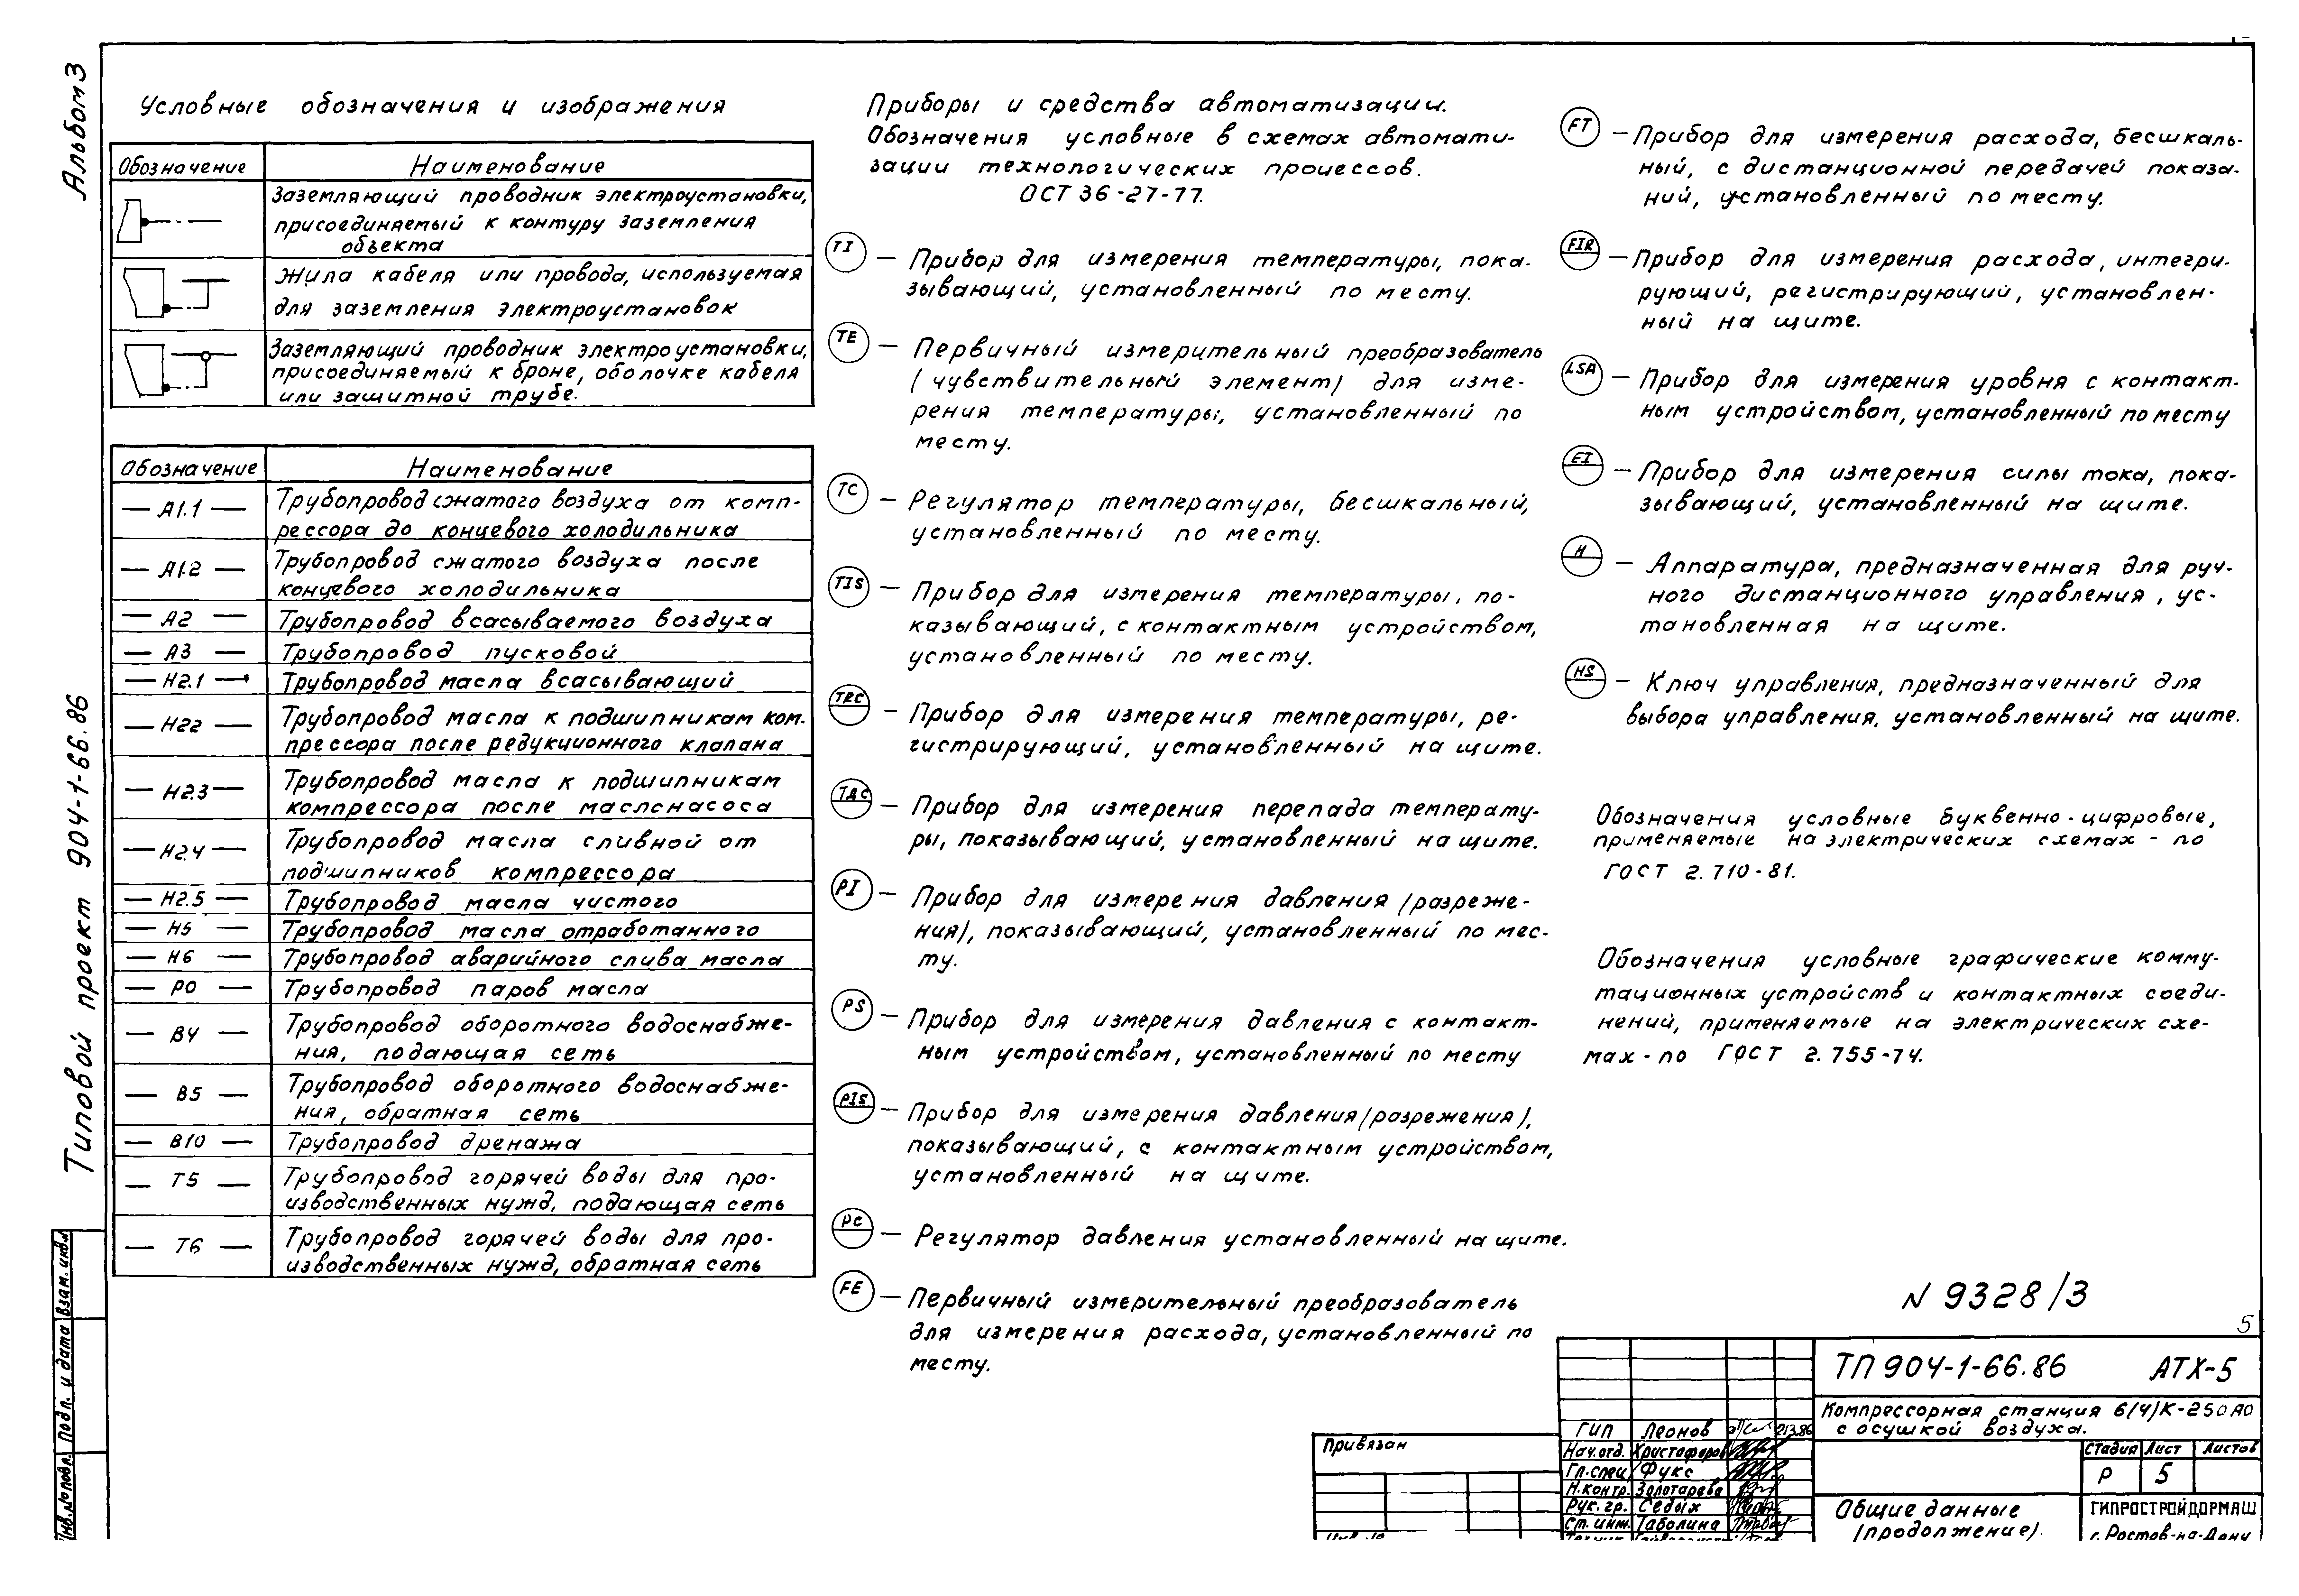 Альбом 3
Типовой проект 904-1-66.86
Условные обозначения и изображения
Обозначение Наименование
Заземляющий проводник электроустановки,
присоединяемый к контуру заземления
объекта
Жила кабеля или провода, используемая
для заземления электроустановок
Заземляющий проводник электроустановки,
присоединяемый к броне, оболочке кабеля
или защитной трубе.
Обозначение Наименование
— А1.1 — Трубопровод сжатого воздуха от комп-
рессора до концевого холодильника
— А1.2 — Трубопровод сжатого воздуха после
концевого холодильника
— А2 — Трубопровод всасываемого воздуха
— А3 — Трубопровод пусковой
— Н2.1 — Трубопровод масла всасывающий
— Н22 — Трубопровод масла к подшипникам ком.
прессора после редукционного клапана
— Н2.3 — Трубопровод масла к подшипникам
компрессора после маслонасоса
— Н2.4 — Трубопровод масла сливной от
подшипников компрессора
— Н2.5 — Трубопровод масла чистого
— Н5 — Трубопровод масла отработанного
— Н6 — Трубопровод аварийного слива масла
— РО — Трубопровод паров масла
— В4 — Трубопровод оборотного водоснабже-
ния, подающая сеть
— В5 — Трубопровод оборотного водоснабже-
ния, обратная сеть
— В10 — Трубопровод дренажа
— Т5 — Трубопровод горячей воды для про-
изводственных нужд, подающая сеть
— Т6 — Трубопровод горячей воды для про-
изводственных нужд, обратная сеть
Приборы и средства автоматизации.
Обозначения условные в схемах автомати-
зации технологических процессов.
ОСТ 36-27-77.
TI — Прибор для измерения температуры, пока-
зывающий, установленный по месту.
TE — Первичный измерительный преобразователь
(чувствительный элемент) для изме-
рения температуры, установленный по
месту.
TC — Регулятор температуры, бесшкальный,
установленный по месту.
TIS — Прибор для измерения температуры, по-
казывающий, с контактным устройством,
установленный по месту.
TRC — Прибор для измерения температуры, ре-
гистрирующий, установленный на щите.
— Прибор для измерения перепада температу-
ры, показывающий, установленный на щите.
PI — Прибор для измерения давления /разреже-
ния), показывающий, установленный по мес-
ту.
PS — Прибор для измерения давления с контакт-
ным устройством, установленный по месту
PIS — Прибор для измерения давления /разрежения),
показывающий, с контактным устройством,
установленный на щите.
PC — Регулятор давления установленный на щите.
FE — Первичный измерительный преобразователь
для измерения расхода, установленный по
месту.
FT — Прибор для измерения расхода, бесшкаль-
ный, с дистанционной передачей показа-
ний, установленный по месту.
FIR — Прибор для измерения расхода, интегри-
рующий, регистрирующий, установлен-
ный на щите.
LSA — Прибор для измерения уровня с контакт-
ным устройством, установленный по месту
EI — Прибор для измерения силы тока, пока-
зывающий, установленный на щите.
H — Аппаратура, предназначенная для руч-
ного дистанционного управления, ус-
тановленная на щите.
HS — Ключ управления, предназначенный для
выбора управления, установленный на щите.
Обозначения условные буквенно-цифровые,
применяемые на электрических схемах - по
ГОСТ 2.710-81.
Обозначения условные графические комму-
тационных устройств и контактных соеди-
нений, применяемые на электрических схе-
мах - по ГОСТ 2.755-74.
N 9328/3
5
ТП 904-1-66.86 АТХ-5
Компрессорная станция 6(4)К-250 АО
с осушкой воздуха.
Стадия Лист Листов
Р 5
Общие данные
(продолжение).
ГИПРОСТРОЙДОРМАШ
г. Ростов-на-Дону
ГИП Леонов 21.3.86
Нач.отд. Христофоров
Гл.спец Фукс
Н.контр. Золотарева
Рук. гр. Седых
Ст. инж. Таболина
Привязан
Взам. инв.
Подп. и дата
Инв. № подл.